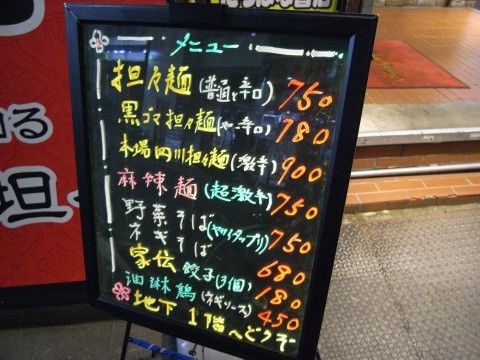 メニュー
担々麺(普通と辛口) 750
黒ゴマ担々麺(やや辛口) 780
本場四川担々麺(激辛) 900
麻辣麺(超激辛) 750
野菜そば(ヤサイタップリ) 750
ネギそば 680
家伝餃子(3個) 180
油淋鶏(ネギソース) 450
地下1階へどうぞ
る
担々